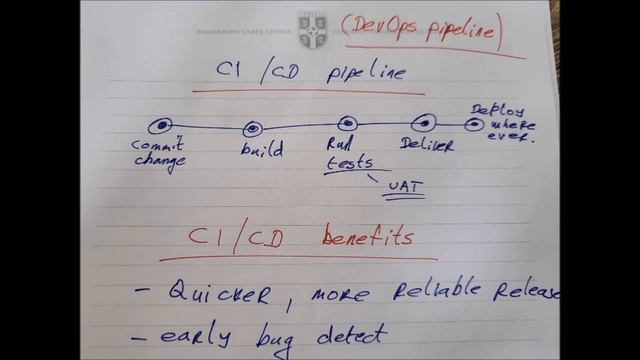 (DevOps pipeline)
CI/CD pipeline
commit change
build
Run tests
UAT
Deliver
Deploy where ever.
CI/CD benefits
- Quicker, more reliable release
- early bug detect